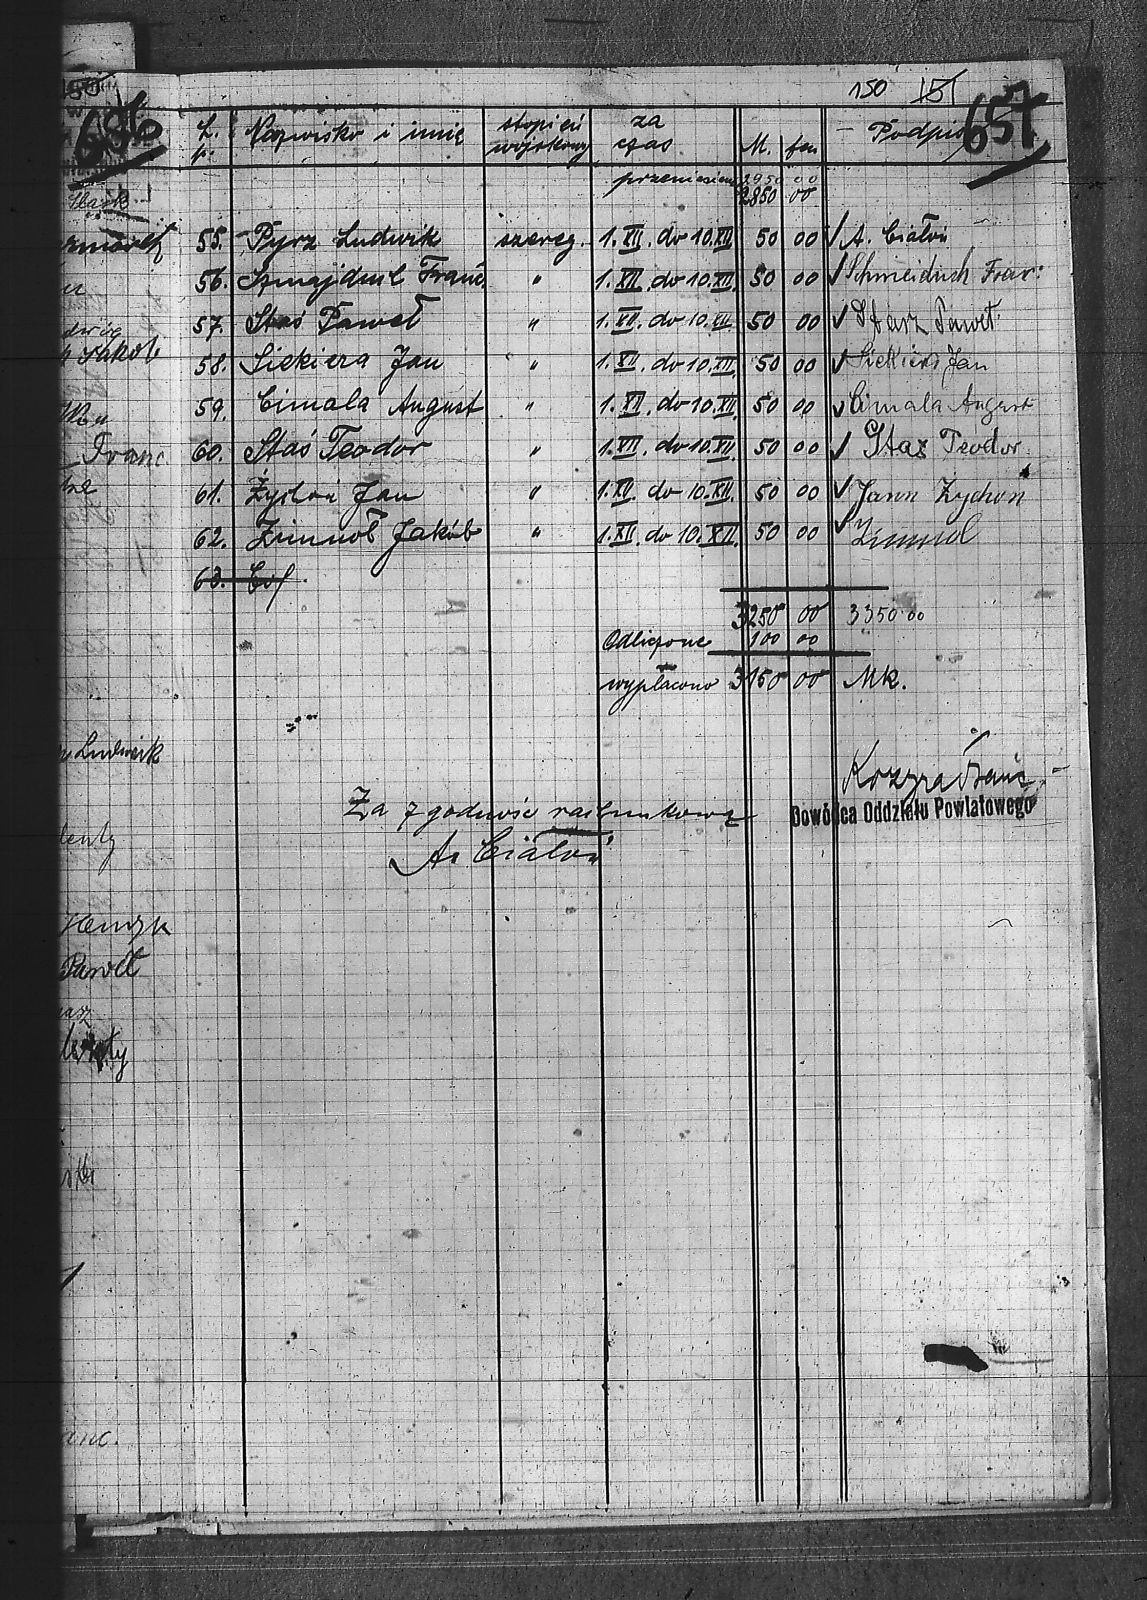 150 151
657
L. p. Nazwisko i imię stopień wojskowy za czas M. fen Podpis
przeniesienie 2950 00
2850 00
55. Pyrz Ludwik szereg. 1.XII. do 10.XII. 50 00 A. Cialoń
56. Szmajduch Franc. " 1.XII. do 10.XII. 50 00 Schmeiduch Fran:
57. Staś Paweł " 1.XII. do 10.XII. 50 00 Starz Paweł
58. Siekiera Jan " 1.XII. do 10.XII. 50 00 Siekiera Jan
59. Cimala August " 1.XII. do 10.XII. 50 00 Cimala August
60. Staś Teodor " 1.XII. do 10.XII. 50 00 Stas Teodor
61. Żychoń Jan " 1.XII. do 10.XII. 50 00 Jann Zychon
62. Zimnol Jakób " 1.XII. do 10.XII. 50 00 Zimnol
63.
3250 00 3350.00
Odliczone 100 00
wypłacono 3150 00 Mk.
Za zgodność rachunkową
A. Cialoń
Dowódca Oddziału Powiatowego
656
Jakób
Franc
Ludwik
Henryk
Paweł
anc.